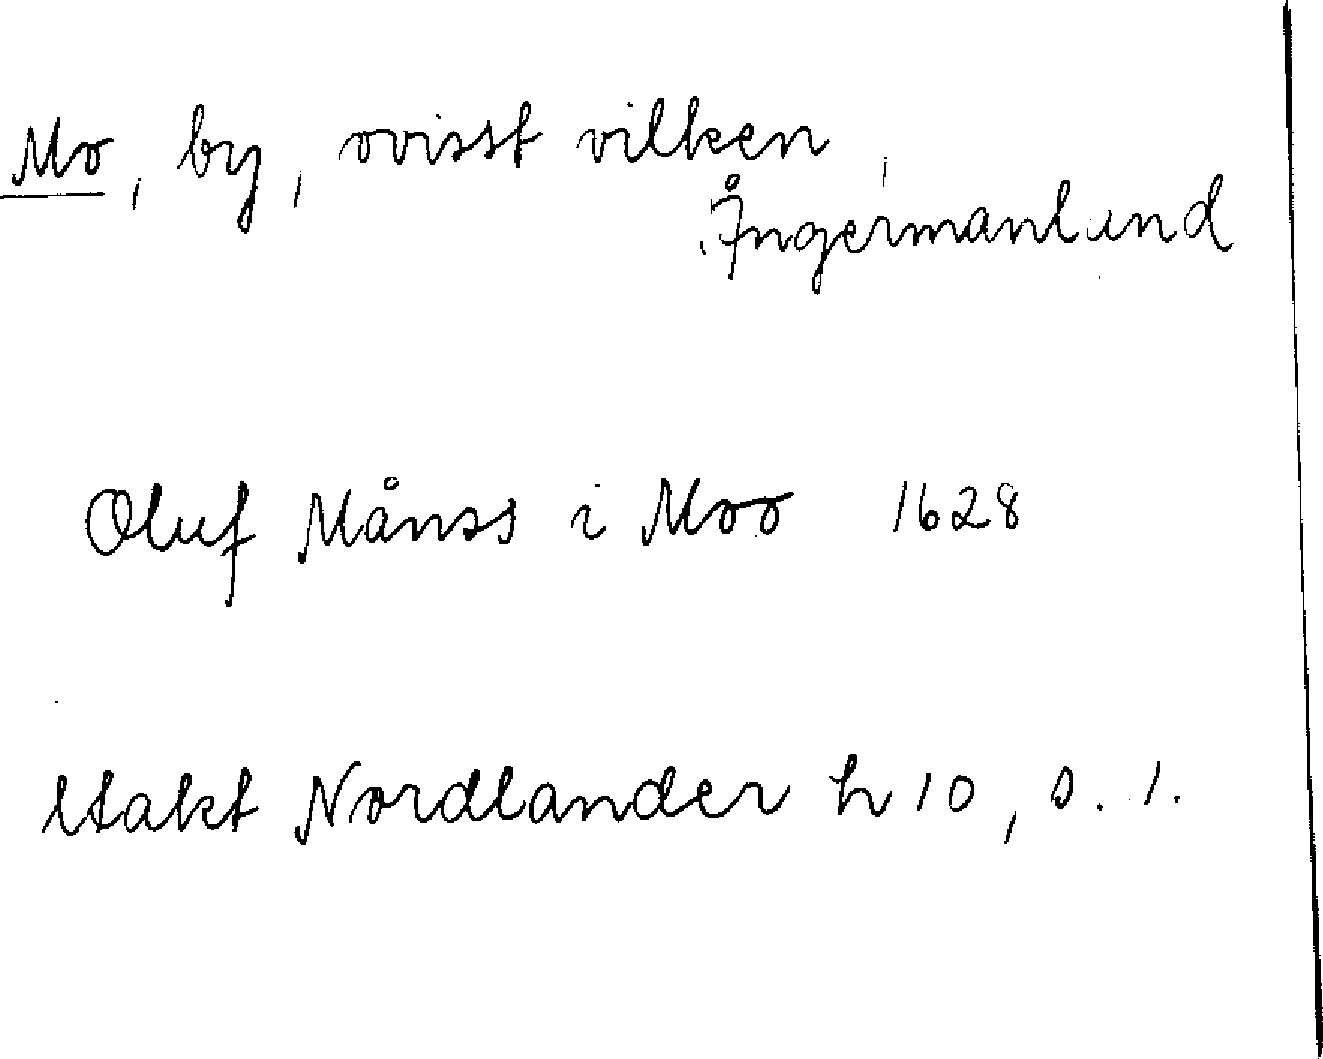 Mo, by, ovisst vilken,
Ångermanland
Oluf Månss i Moo 1628
Utakt Nordlander h 10, s. 1.